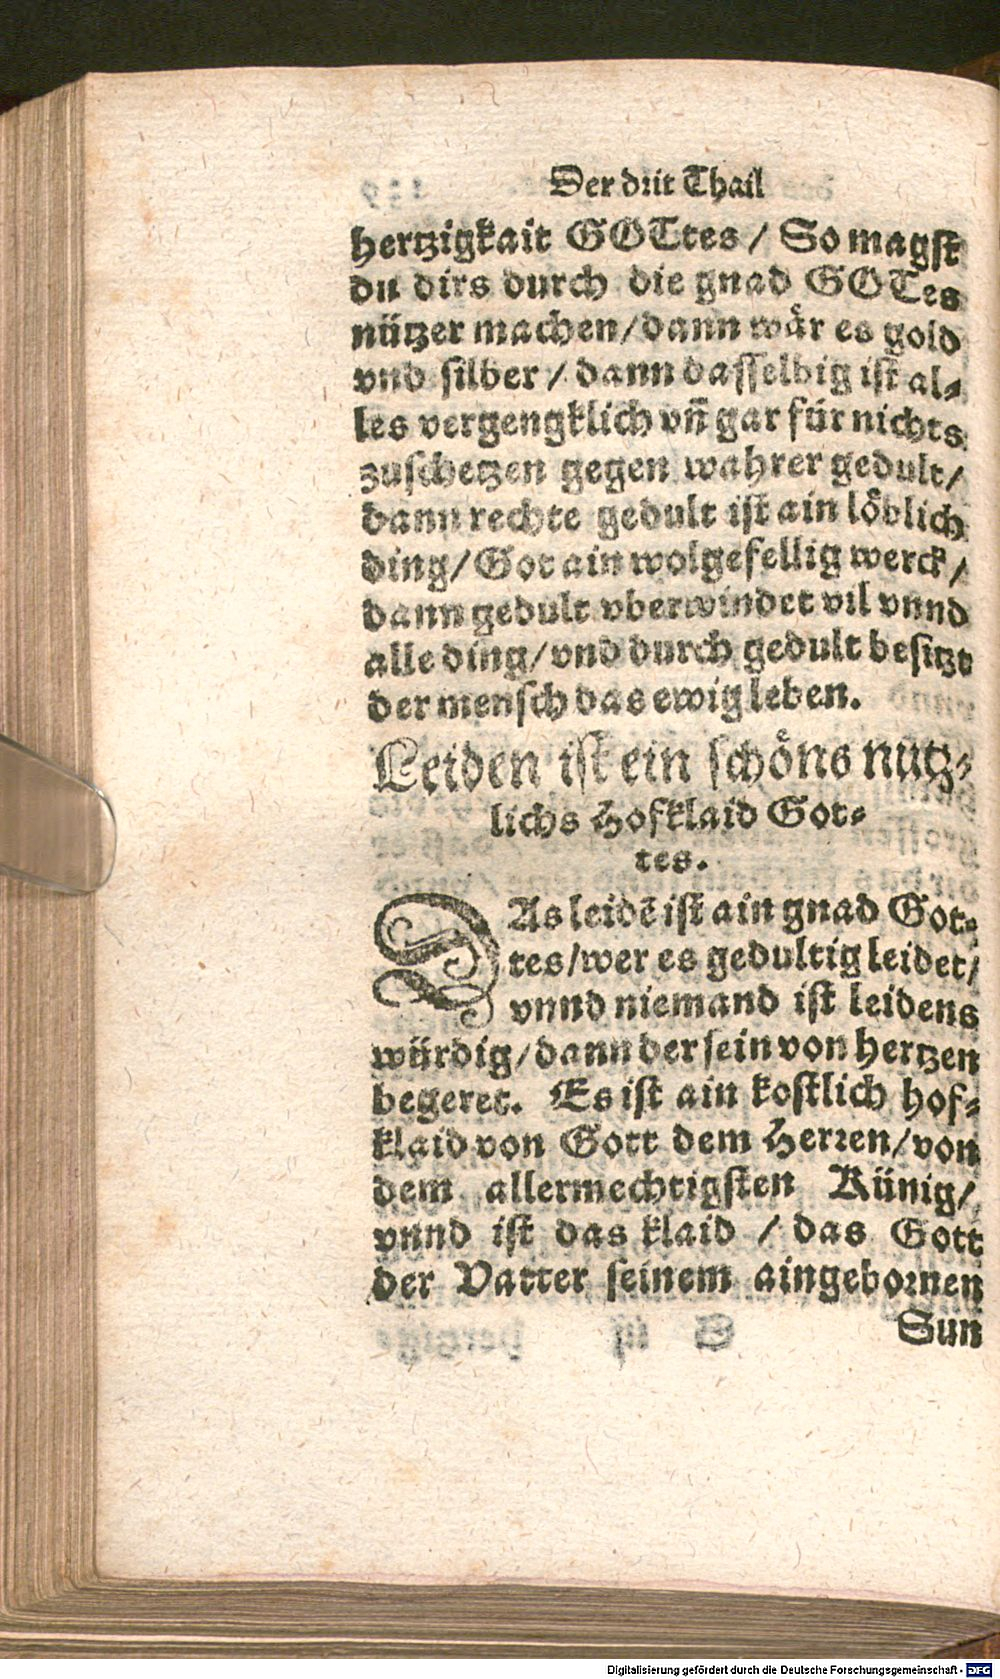 Der drit Thail
hertzigkait GOTtes / So magst
du dirs durch die gnad GOTes
nützer machen/dann wär es gold
vnd silber / dann dasselbig ist al⸗
les vergengklich vñ gar für nichts
zuschetzen gegen wahrer gedult/
dann rechte gedult ist ain löblich
ding/Got ain wolgefellig werck/
dann gedult vberwindet vil vnnd
alle ding/vnd durch gedult besitzt
der mensch das ewig leben.
Leiden ist ein schöns nütz⸗
lichs Hofklaid Got⸗
tes.
DAs leidē ist ain gnad Got⸗
tes/wer es gedultig leidet/
vnnd niemand ist leidens
würdig/dann der sein von hertzen
begeret. Es ist ain kostlich hof⸗
klaid von Gott dem Herren/von
dem allermechtigsten Künig/
vnnd ist das klaid / das Gott
der Vatter seinem aingebornen
Sun
Digitalisierung gefördert durch die Deutsche Forschungsgemeinschaft - DFG